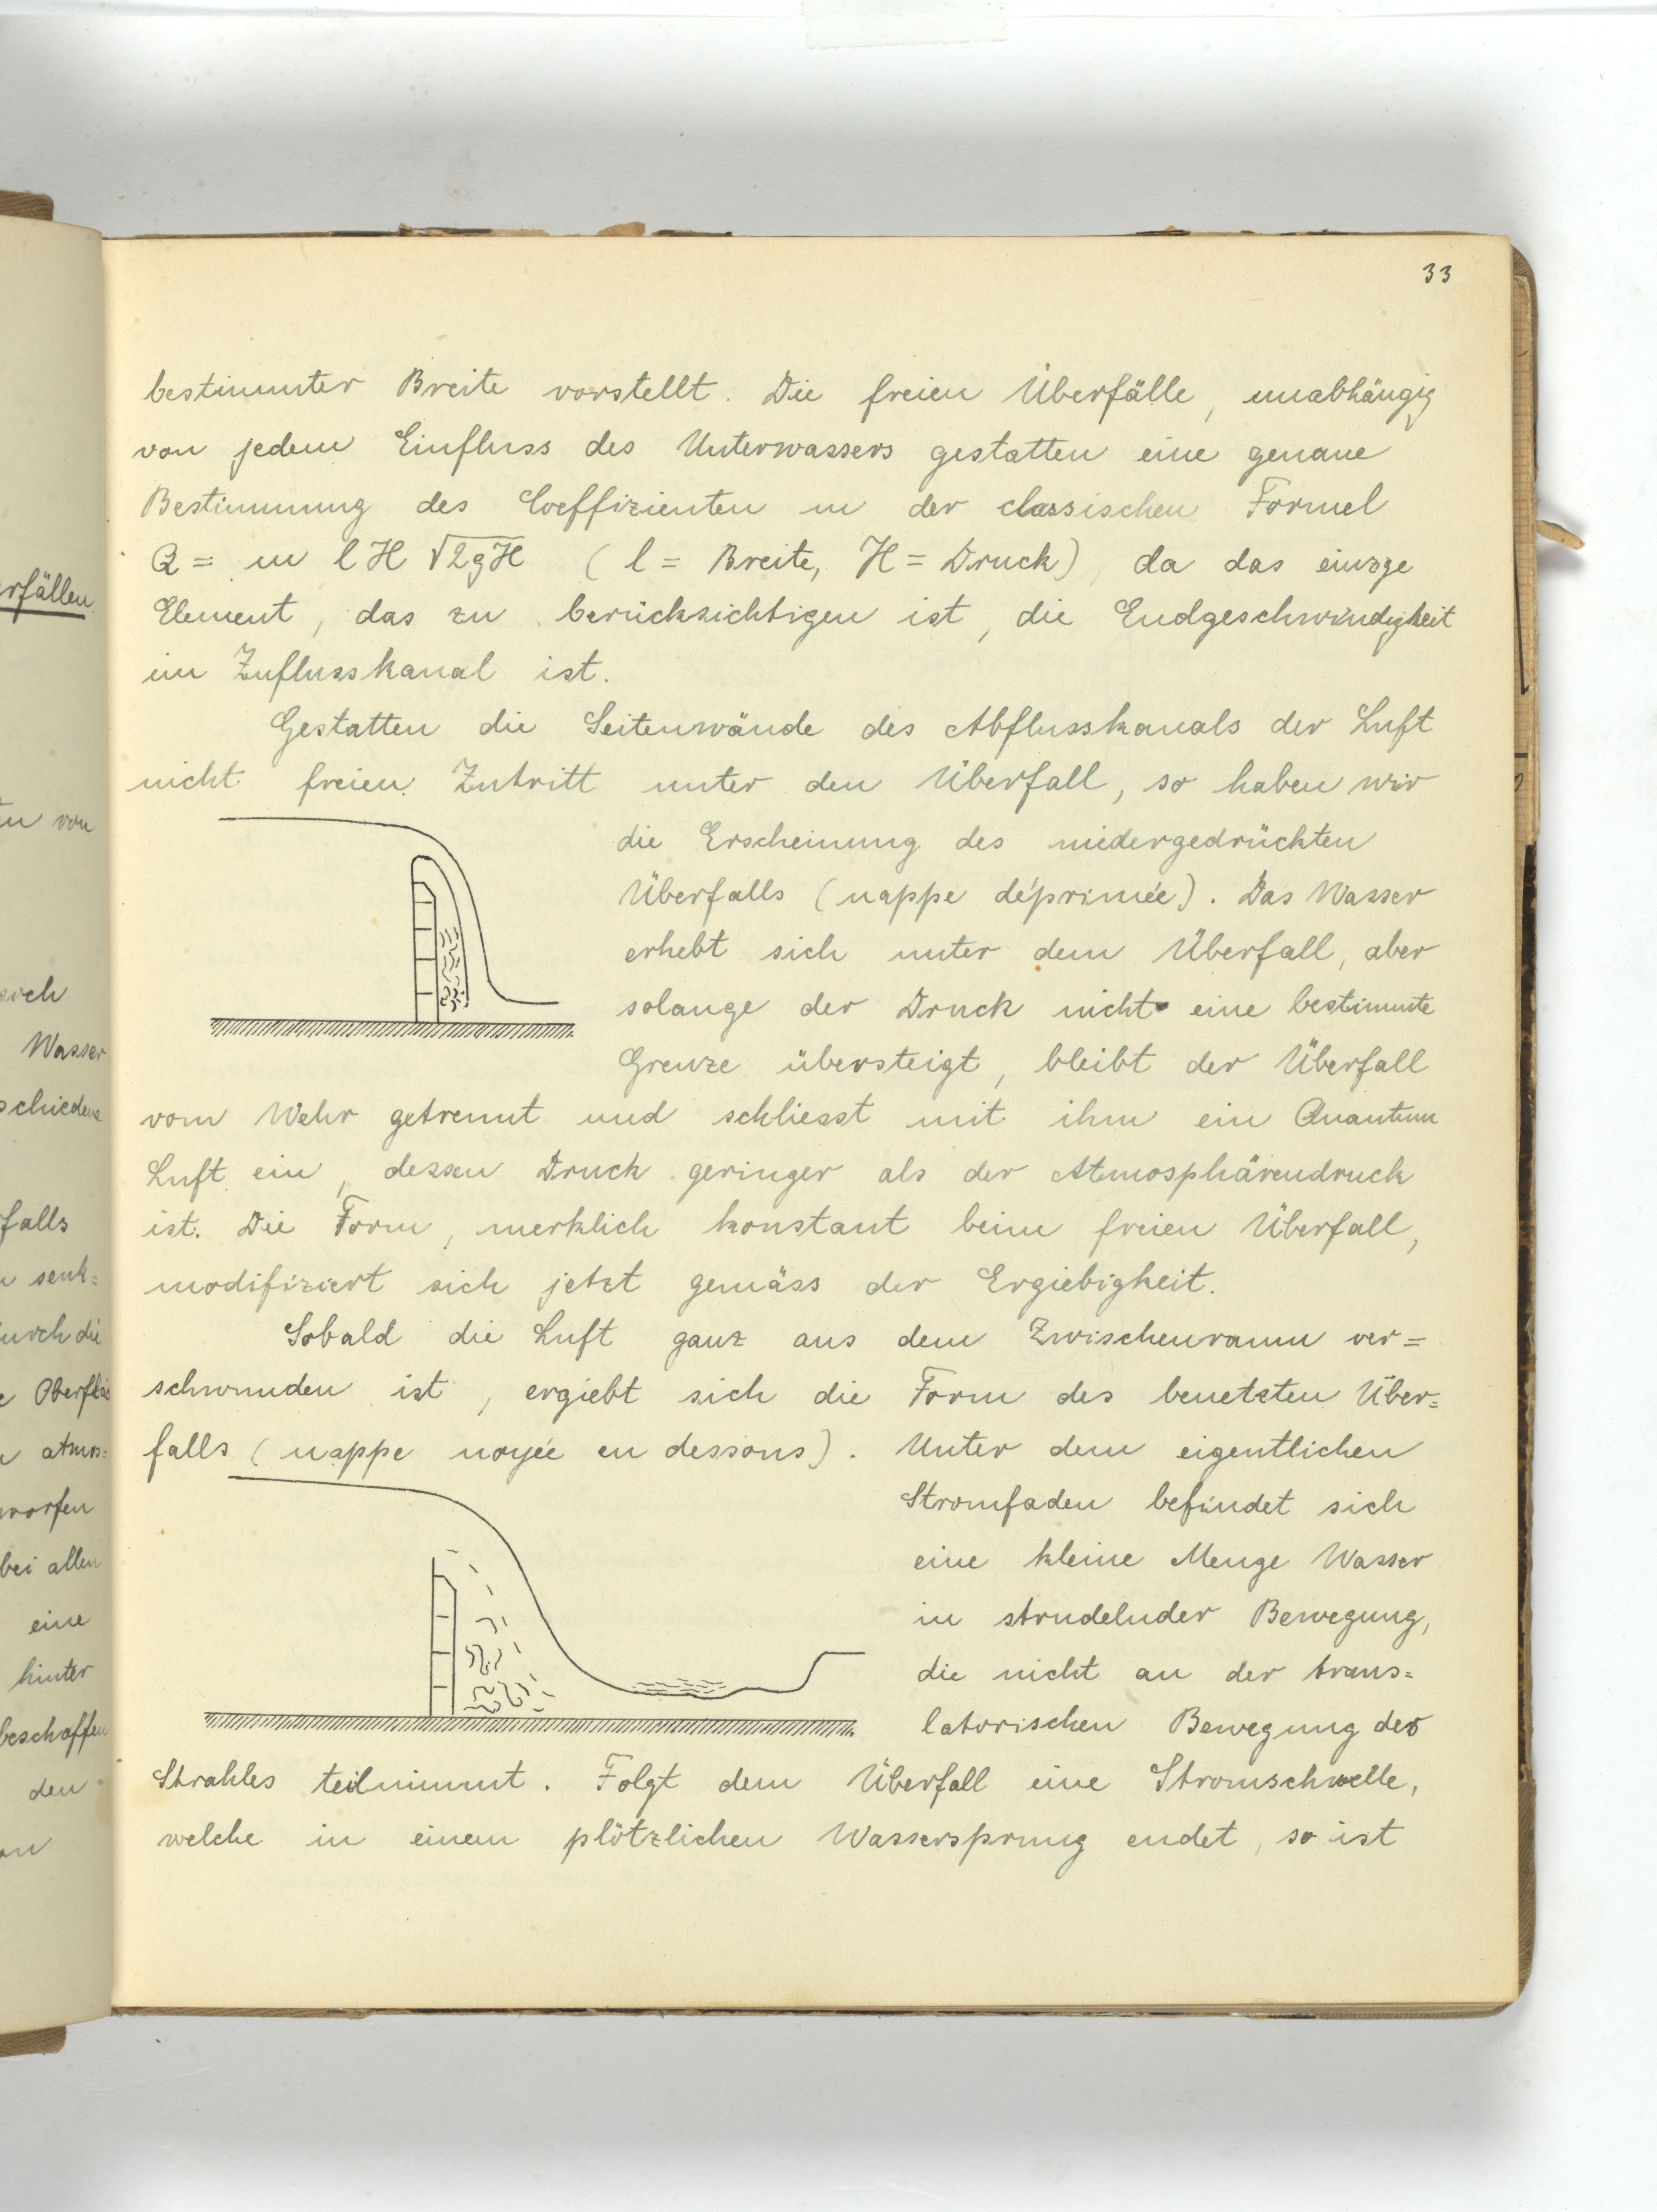 33
bestimmter Breite vorstellt. Die freien Überfälle, unabhängig
von jedem Einfluss des Unterwassers gestatten eine genaue
Bestimmung des Coeffizienten m der classischen Formel
Q = m l H √2gH ( l = Breite, H = Druck), da das einzge
Element, das zu berücksichtigen ist, die Endgeschwindigkeit
im Zuflusskanal ist.
Gestatten die Seitenwände des Abflusskanals der Luft
nicht freien Zutritt unter den Überfall, so haben wir
die Erscheinung des niedergedrückten
Überfalls (nappe déprimée). Das Wasser
erhebt sich unter dem Überfall, aber
solange der Druck nicht eine bestimmte
Grenze übersteigt, bleibt der Überfall
vom Wehr getrennt und schliesst mit ihm ein Quantum
Luft ein, dessen Druck geringer als der Atmosphärendruck
ist. Die Form, merklich konstant beim freien Überfall,
modifiziert sich jetzt gemäss der Ergiebigkeit.
Sobald die Luft ganz aus dem Zwischenraum ver=
schwunden ist, ergiebt sich die Form des benetzten Über=
falls (nappe noyée en dessous). Unter dem eigentlichen
Stromfaden befindet sich
eine kleine Menge Wasser
in strudelnder Bewegung,
die nicht an der trans=
latorischen Bewegung des
Strahles teilnimmt. Folgt dem Überfall eine Stromschwelle,
welche in einem plötzlichen Wassersprung endet, so ist
rfällen
en von
sich
Wasser
schiedene
falls
senk=
durch die
Oberflä
atmos=
worfen
bei allen
eine
hinter
beschaffen
den